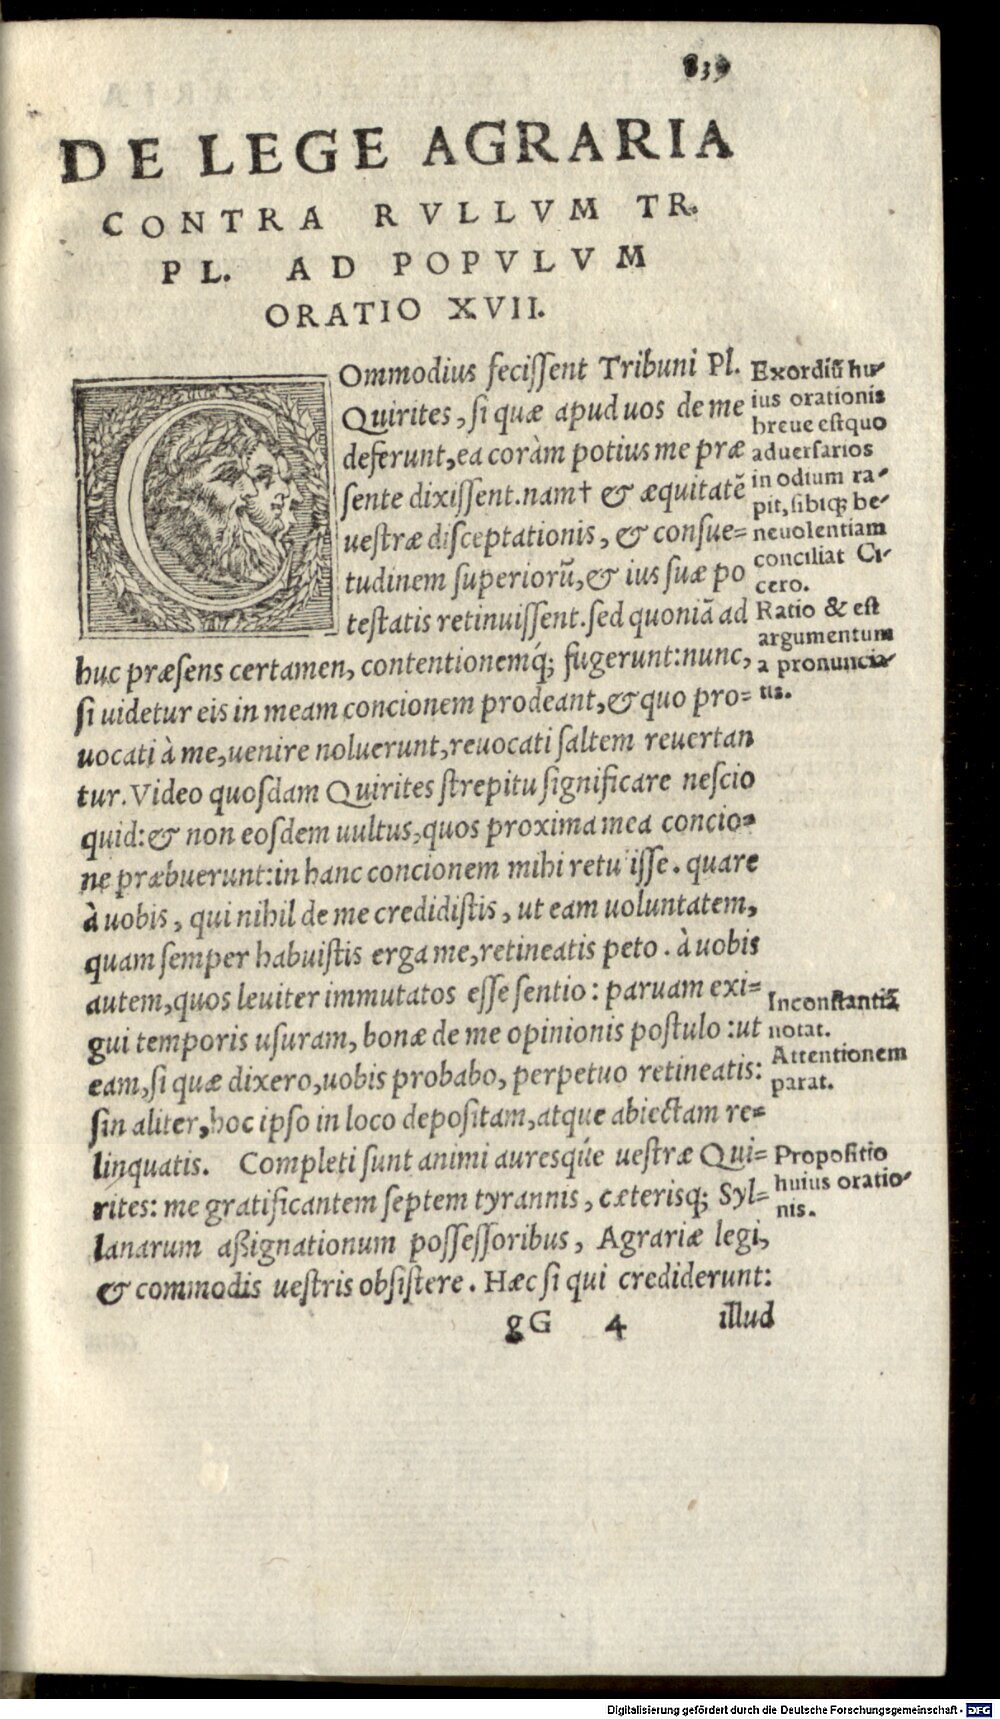 839
DE LEGE AGRARIA
CONTRA RVLLVM TR.
PL. AD POPVLVM
ORATIO XVII.
COmmodius fecissent Tribuni Pl.
Quirites, si quæ apud uos de me
deferunt, ea coràm potius me præ
sente dixissent. nam† & æquitatẽ
uestræ disceptationis, & consue=
tudinem superiorũ, & ius suæ po
testatis retinuissent. sed quoniã ad
huc præsens certamen, contentionemq́; fugerunt: nunc,
si uidetur eis in meam concionem prodeant, & quo pro=
uocati à me, uenire noluerunt, reuocati saltem reuertan
tur. Video quosdam Quirites strepitu significare nescio
quid: & non eosdem uultus, quos proxima mea concio=
ne præbuerunt: in hanc concionem mihi retu isse. quare
à uobis, qui nihil de me credidistis, ut eam uoluntatem,
quam semper habuistis erga me, retineatis peto. à uobis
autem, quos leuiter immutatos esse sentio: paruam exi=
gui temporis usuram, bonæ de me opinionis postulo: ut
eam, si quæ dixero, uobis probabo, perpetuo retineatis:
sin aliter, hoc ipso in loco depositam, atque abiectam re=
linquatis. Completi sunt animi auresqúe uestræ Qui=
rites: me gratificantem septem tyrannis, cæterisq; Syl=
lanarum aßignationum possessoribus, Agrariæ legi,
& commodis uestris obsistere. Hæc si qui crediderunt:
gG 4 illud
Exordiũ hu-
ius orationis
breue estquo
aduersarios
in odium ra-
pit, sibiq; be-
neuolentiam
conciliat Ci-
cero.
Ratio & est
argumentum
a pronuncia-
tis.
Inconstantiã
notat.
Attentionem
parat.
Propositio
huius oratio-
nis.
Digitalisierung gefördert durch die Deutsche Forschungsgemeinschaft - DFG